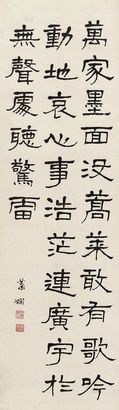 萬家墨面没蒿萊敢有歌吟
動地哀心事浩茫連廣宇於
無聲處聽驚雷
蕭嫻